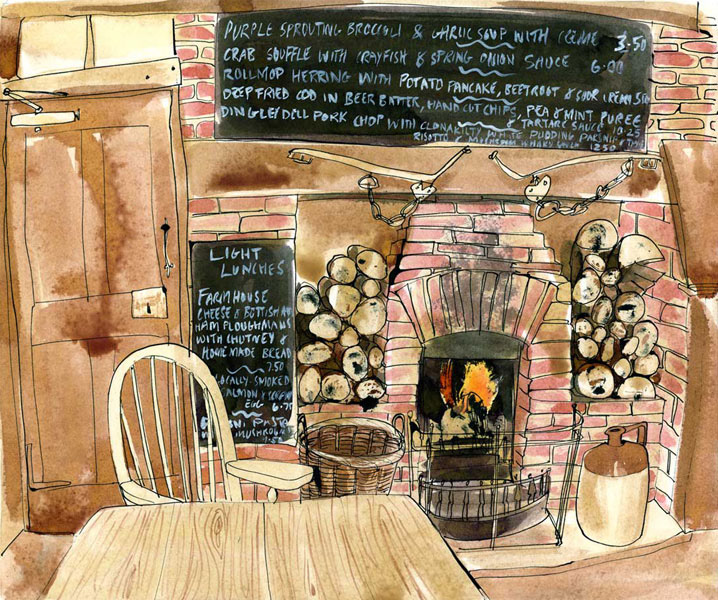 PURPLE SPROUTING BROCCOLI & GARLIC SOUP WITH CREME 3.50
CRAB SOUFFLE WITH CRAYFISH & SPRING ONION SAUCE 6.00
ROLLMOP HERRING WITH POTATO PANCAKE, BEETROOT & SOUR CREAM
DEEP FRIED COD IN BEER BATTER, HAND CUT CHIPS, PEA & MINT PUREE
& TARTARE SAUCE 10.25
DINGLEY DELL PORK CHOP WITH CLONAKILTY WHITE PUDDING
RISOTTO & MUSHROOM 12.50
LIGHT
LUNCHES
FARMHOUSE
CHEESE &
HAM PLOUGHMANS
WITH CHUTNEY &
HOME MADE BREAD
7.50
LOCALLY SMOKED
SALMON &
EGG 6.75